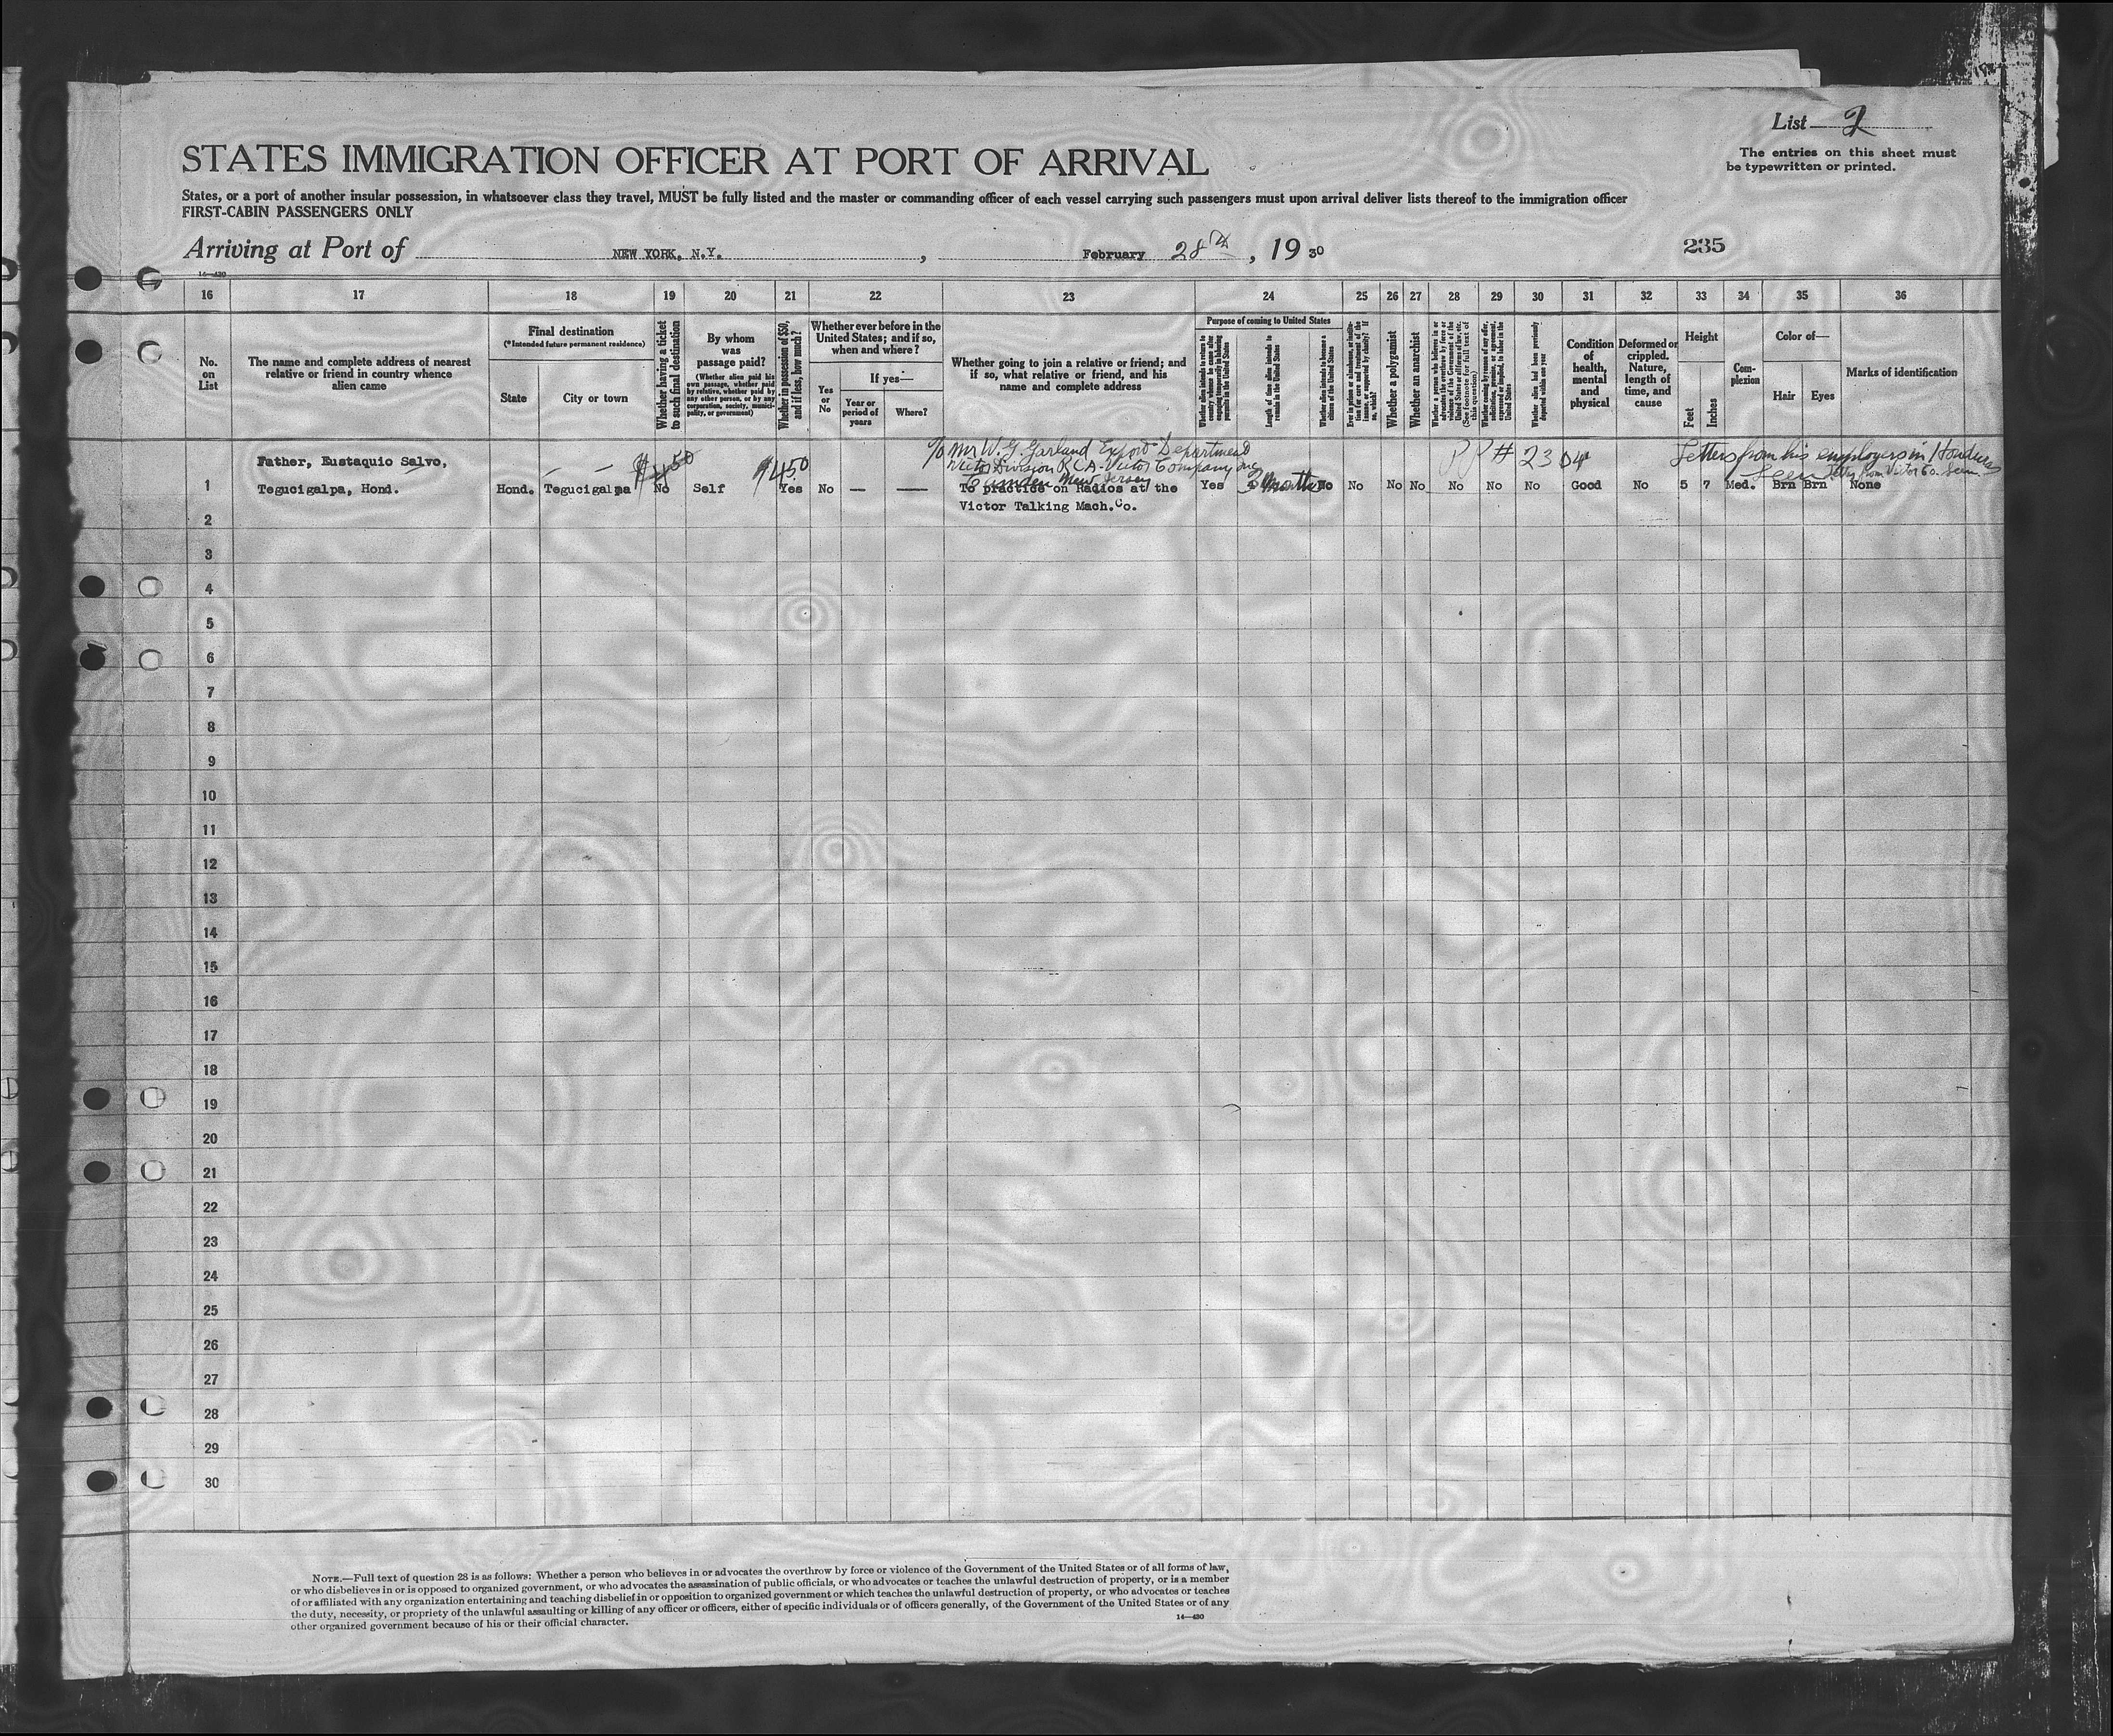 List 2
The entries on this sheet must
be typewritten or printed.
STATES IMMIGRATION OFFICER AT PORT OF ARRIVAL
States, or a port of another insular possession, in whatsoever class they travel, MUST be fully listed and the master or commanding officer of each vessel carrying such passengers must upon arrival deliver lists thereof to the immigration officer
FIRST-CABIN PASSENGERS ONLY
Arriving at Port of NEW YORK, N.Y., February 28th, 19 30
235
14—430
16 17 18 19 20 21 22 23 24 25 26 27 28 29 30 31 32 33 34 35 36
No.
on
List
The name and complete address of nearest
relative or friend in country whence
alien came
Final destination
(*Intended future permanent residence)
State
City or town
Whether having a ticket
to such final destination
By whom
was
passage paid?
(Whether alien paid his
own passage, whether paid
by relative, whether paid by
any other person, or by any
corporation, society, munici-
pality, or government)
Whether in possession of $50,
and if less, how much?
Whether ever before in the
United States; and if so,
when and where?
Yes
or
No
If yes—
Year or
period of
years
Where?
Whether going to join a relative or friend; and
if so, what relative or friend, and his
name and complete address
Purpose of coming to United States
Whether alien intends to return to
country whence he came after
engaging temporarily in laboring
pursuits in the United States
Length of time alien intends to
remain in the United States
Whether alien intends to become a
citizen of the United States
Ever in prison or almshouse, or institu-
tion for care and treatment of the
insane, or supported by charity? If
so, which?
Whether a polygamist
Whether an anarchist
Whether a person who believes in or
advocates the overthrow by force or
violence of the Government of the
United States or all forms of law, etc.
(See footnote for full text of
this question)
Whether coming by reason of any offer,
solicitation, promise, or agreement,
expressed or implied, to labor in the
United States
Whether alien had been previously
deported within one year
Condition
of
health,
mental
and
physical
Deformed or
crippled.
Nature,
length of
time, and
cause
Height
Feet
Inches
Com-
plexion
Color of—
Hair
Eyes
Marks of identification
Father, Eustaquio Salvo,
Tegucigalpa, Hond.
— —
$450
$450
c/o Mr W. G. Garland Export Department
Victor Division RCA-Victor Company Inc
Camden New Jersey
PP # 2304
Letters from his employers in Honduras
Seen Letter from Victor Co. Seen
1 Hond. Tegucigalpa No Self Yes No — — To practice on Radios at the Yes 3 Months No No No No No No No Good No 5 7 Med. Brn Brn None
Victor Talking Mach. Co.
2
3
4
5
6
7
8
9
10
11
12
13
14
15
16
17
18
19
20
21
22
23
24
25
26
27
28
29
30
NOTE.—Full text of question 28 is as follows: Whether a person who believes in or advocates the overthrow by force or violence of the Government of the United States or of all forms of law,
or who disbelieves in or is opposed to organized government, or who advocates the assassination of public officials, or who advocates or teaches the unlawful destruction of property, or is a member
of or affiliated with any organization entertaining and teaching disbelief in or opposition to organized government or which teaches the unlawful destruction of property, or who advocates or teaches
the duty, necessity, or propriety of the unlawful assaulting or killing of any officer or officers, either of specific individuals or of officers generally, of the Government of the United States or of any
other organized government because of his or their official character.
14—430